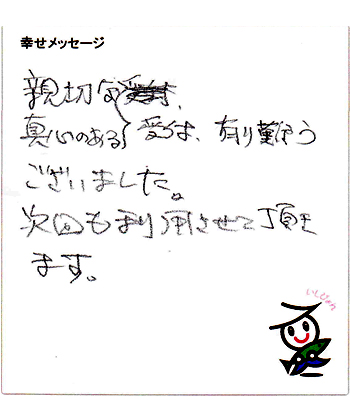 幸せメッセージ
親切な
真心のある 受付、有り難う
ございました。
次回も利用させて頂き
ます。